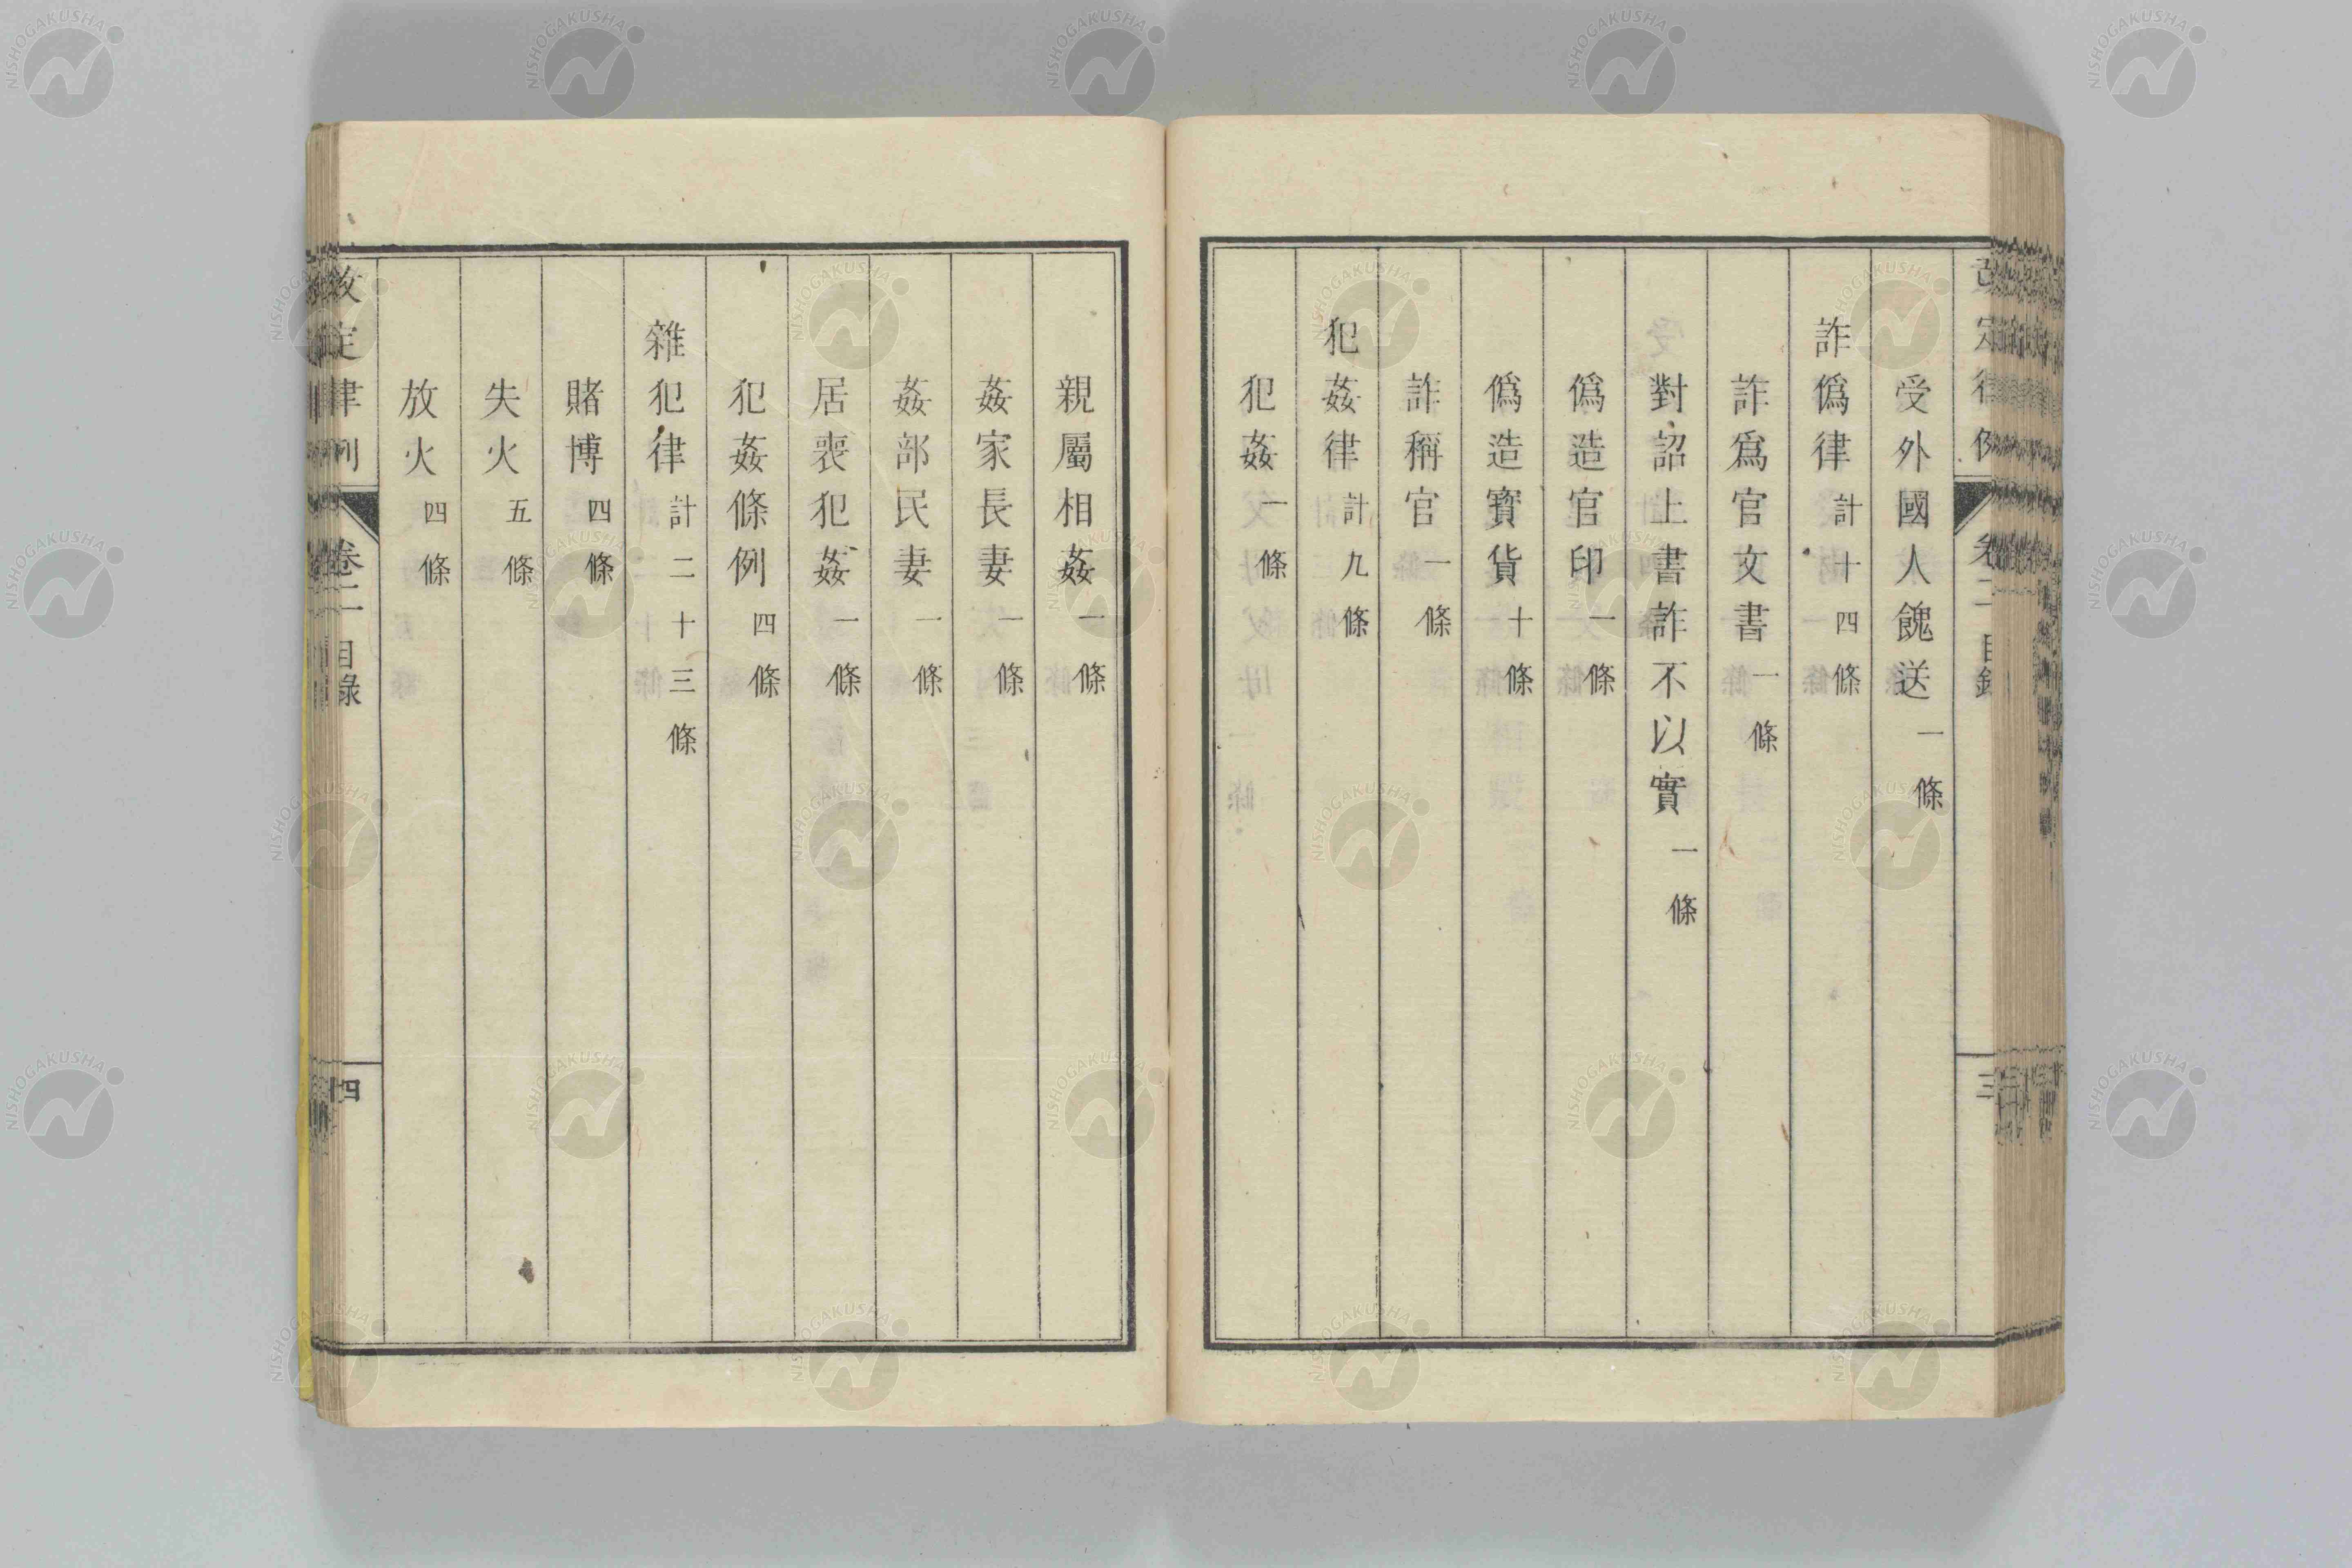 改定律例 卷二 目錄 三
受外國人餽送 一條
詐僞律 計十四條
詐爲官文書 一條
對詔上書詐不以實 一條
僞造官印 一條
僞造寶貨 十條
詐稱官 一條
犯姦律 計九條
犯姦 一條
親屬相姦 一條
姦家長妻 一條
姦部民妻 一條
居喪犯姦 一條
犯姦條例 四條
雜犯律 計二十三條
賭博 四條
失火 五條
放火 四條
改定律例 卷二 目錄 四
NISHOGAKUSHA